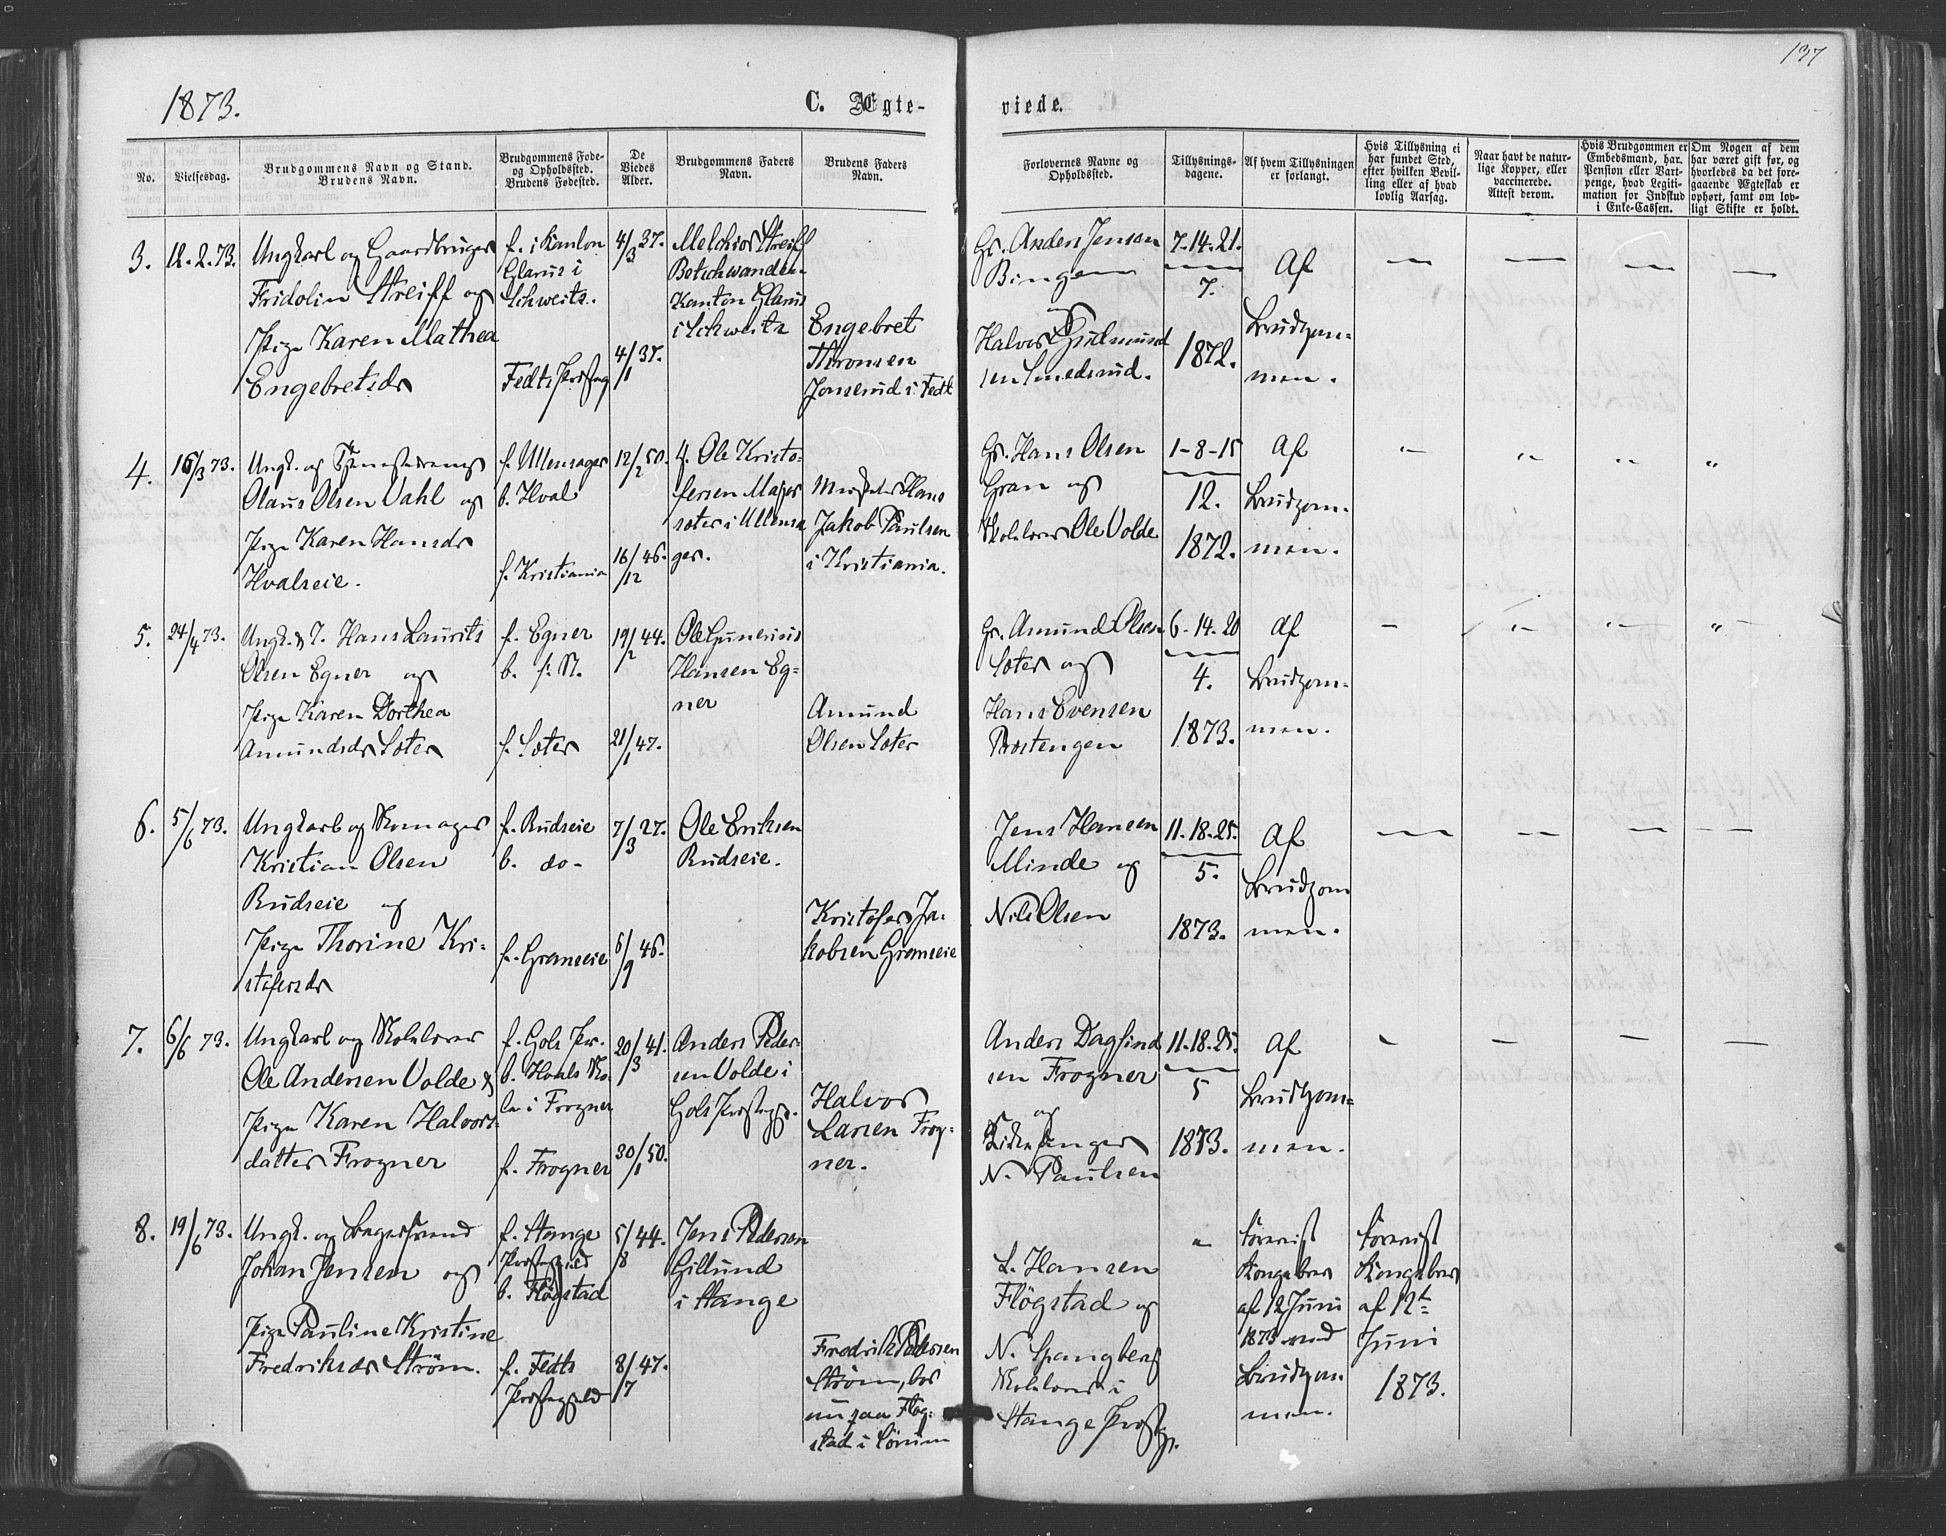 137
1873.
C. Ægte-
viede.
No.
Vielsesdag.
Brudgommens Navn og Stand.
Brudens Navn.
Brudgommens Føde-
og Opholdssted.
Brudens Fødested.
De
Viedes
Alder.
Brudgommens Faders
Navn.
Brudens Faders
Navn.
Forlovernes Navne og
Opholdssted.
Tillysnings-
dagene.
Af hvem Tillysningen
er forlangt.
Hvis Tillysning ei
har fundet Sted,
efter hvilken Bevil-
ling eller af hvad
lovlig Aarsag.
Naar havt de natur-
lige Kopper, eller
vaccinerede.
Attest derom.
Hvis Brudgommen er
Embedsmand, har
Pension eller Vart-
penge, hvad Legiti-
mation for Indskud
i Enke-Cassen.
Om Nogen af dem
har været gift før, og
hvorledes da det fore-
gaaende Ægteskab er
ophørt, samt om lov-
ligt Skifte er holdt.
3.
12.2.73.
Ungkarl og Gaardbruger
Fridolin Streiff og
Pige Karen Mathea
Engebretsdr
f. i Kanton
Glarus i
Schweits.
Fedts
4/3 37.
4/1 37.
Melchior Streiff
Kanton Glarus
i Schweits
Engebret
Thronsen
i Fedt
Gr. Anders Jensen
Bingen
og
Halvor Gudmund
sen Smedsrud.
7-14-21.
7.
1872.
Af
Brudgom-
men.
4.
16/3 73.
Ungk. og
Olaus Olsen Dahl og
Pige Karen Hansdr
Hvalseie.
f. Ullensager
b. Hval
f. Kristiania
12/2 50.
16/12 46.
Ole Kristo-
fersen
i Ullensa
ger.
Hans
Jakob Paulsen
i Kristiania.
Gr. Hans Olsen
Gran og
Skolelærer Ole Volde
1-8-15
12.
1872.
Af
Brudgom-
men.
5.
24/4 73.
Ungk. & Hans Laurits
Olsen Egner og
Pige Karen Dorthea
Amundsdr Sæter
f. Egner
b.
f. Sæter
19/2 44.
21/1 47.
Ole Gunerius
Hansen Eg-
ner
Amund
Olsen Sæter
Gr. Amund Olsen
Sæter og
Hans Evensen
Prestengen
6-14-20
4.
1873.
Af
Brudgom-
men.
6.
5/6 73.
Ungkarl og Skomager
Kristian Olsen
Rudseie og
Pige Thorine Kri-
stofersdr
f. Rudseie
b. do-
f. Granseie
7/3 27.
6/9 46.
Ole Eriksen
Rudseie.
Kristofer Ja-
kobsen Granseie
Jens Hansen
Minde og
Nils Olsen
11-18-25.
5.
1873.
Af
Brudgom
men.
7.
6/6 73.
Ungkarl og Skolelærer
Ole Andersen Volde &
Pige Karen Halvors-
datter Frogner
f. Gols Pr.
b. Hvals Sko-
le i Frogner
f. Frogner
20/3 41.
30/1 50.
Anders Peder-
sen Volde i
Gols
Halvor
Larsen Frog-
ner.
Anders Dagfind
sen Frogner
og
Kirkesanger
N. Paulsen
11-18-25.
5
1873.
Af
Brudgom-
men.
8.
19/6 73.
Ungk. og
Johan Jensen og
Pige Pauline Kristine
Fredriksdr Strøm.
f. Stange
Præstegjeld
b. Fløgstad
f. Fedts
Præstegjeld
5/8 44.
8/7 47.
Jens Pedersen
Gillund
i Stange
Fredrik Pedersen
Strøm, bor
nu paa Flog-
stad i Sørum
L. Hansen
Flögstad og
N. Spangberg
Skolelærer i
Stange Præstgj.
Forevist
Kongebrev
af 12 Juni
1873 med
Brudgom
men.
Forevist
Kongebrev
af 12te
Juni
1873.